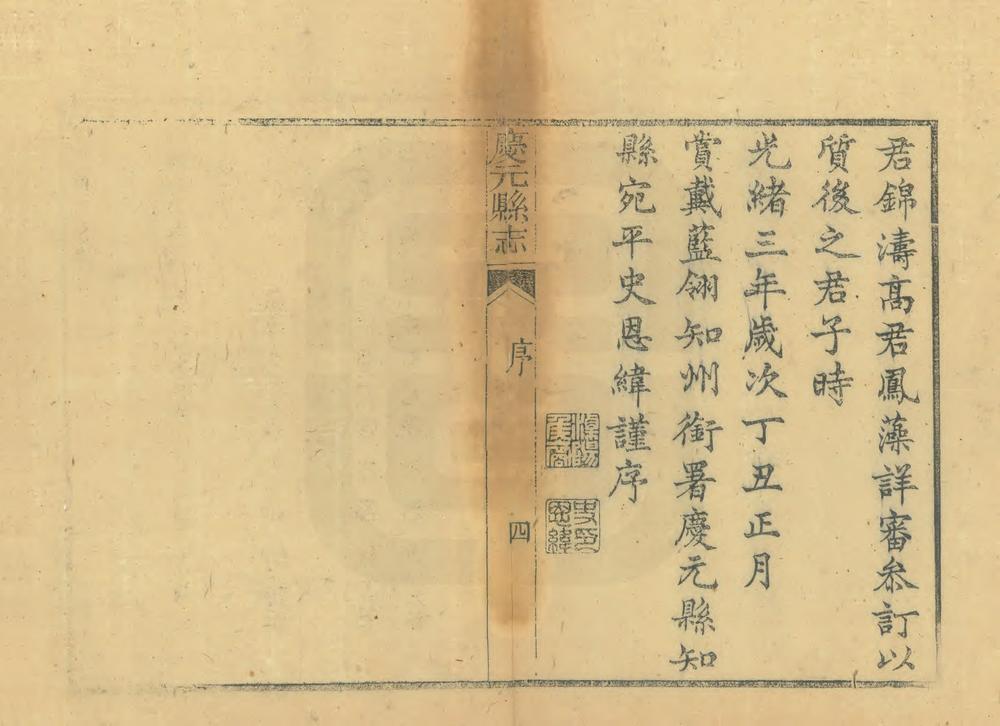 君錦濤高君鳳藻詳審叅訂以
質後之君子時
光緒三年歲次丁丑正月
賞戴藍翎知州銜署慶元縣知
縣宛平史恩緯謹序
史恩緯印
慶元縣志
序
四